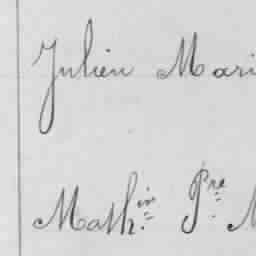 Julien Mari
Math.in Pre M